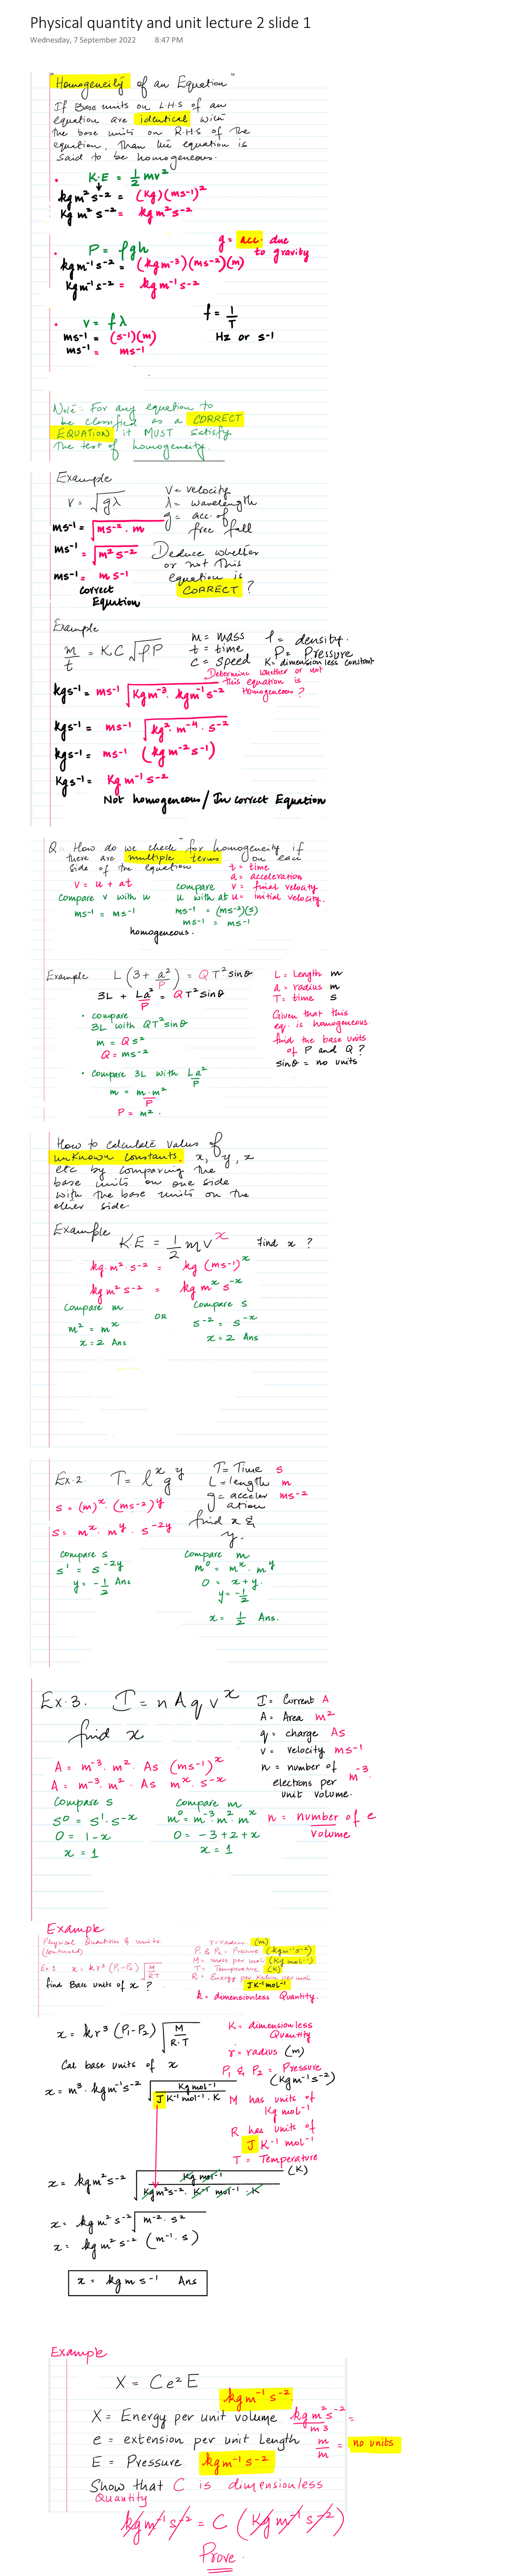 Physical quantity and unit lecture 2 slide 1
Wednesday, 7 September 2022 8:47 PM
"Homogeneity of an Equation"
If Base units on L.H.S of an
equation are identical with
the base units on R.H.S of the
equation, Than the equation is
said to be homogeneous.
• K.E = 1/2 mv²
kg m² s⁻² = (kg)(ms⁻¹)²
kg m² s⁻² = kg m² s⁻²
g = acc. due
to gravity
• P = ρgh
kg m⁻¹ s⁻² = (kg m⁻³)(ms⁻²)(m)
kg m⁻¹ s⁻² = kg m⁻¹ s⁻²
• v = fλ f = 1/T
ms⁻¹ = (s⁻¹)(m) Hz or s⁻¹
ms⁻¹ = ms⁻¹
Note:- For any equation to
be classified as a CORRECT
EQUATION it MUST satisfy
the test of homogeneity.
Example
v = √gλ
V = velocity
λ = wavelength
g = acc. of
free fall
ms⁻¹ = √ms⁻² . m
ms⁻¹ = √m² s⁻²
ms⁻¹ = m s⁻¹
Correct
Equation
Deduce whether
or not this
equation is
CORRECT ?
Example
m/t = KC√ρP
m = mass ρ = density.
t = time P = Pressure
c = speed K = dimension less constant
Determine whether or not
this equation is
Homogeneous ?
kg s⁻¹ = ms⁻¹ √kg m⁻³ . kg m⁻¹ s⁻²
kg s⁻¹ = ms⁻¹ √kg² . m⁻⁴ . s⁻²
kg s⁻¹ = ms⁻¹ (kg m⁻² s⁻¹)
kg s⁻¹ = kg m⁻¹ s⁻²
Not homogeneous / In correct Equation
Q: How do we check for homogeneity if
there are multiple terms on each
side of the equation
t = time
a = acceleration
v = final velocity
u = initial velocity.
V = u + at
Compare v with u
ms⁻¹ = ms⁻¹
compare
u with at
ms⁻¹ = (ms⁻²)(s)
ms⁻¹ = ms⁻¹
homogeneous.
Example L(3 + a²/P) = QT² sinθ
3L + La²/P = QT² sinθ
L = Length m
a = radius m
T = time s
Given that this
eq. is homogeneous.
find the base units
of P and Q ?
sinθ = no units
• compare
3L with QT² sinθ
m = Q s²
Q = ms⁻²
• Compare 3L with La²/P
m = m.m²/P
P = m².
How to calculate values of
unknown constants, x, y, z
etc by comparing the
base units on one side
with the base units on the
other side.
Example
K.E = 1/2 m v^x find x ?
kg.m².s⁻² = kg (ms⁻¹)^x
kg m² s⁻² = kg m^x s^-x
Compare m
m² = m^x
x = 2 Ans
OR
Compare s
s⁻² = s^-x
x = 2 Ans
Ex.2. T = l^x g^y
T = Time s
L = length m
g = acceler ms⁻²
ation
find x &
y.
s = (m)^x . (ms⁻²)^y
s = m^x . m^y . s^-2y
Compare s
s¹ = s^-2y
y = -1/2 Ans
Compare m
m⁰ = m^x . m^y
0 = x + y.
y = -1/2
x = 1/2 Ans.
Ex.3. I = n A q v^x
find x
I = Current A
A = Area m²
q = charge As
v = velocity ms⁻¹
n = number of
electrons per m⁻³.
unit volume.
A = m⁻³. m². As (ms⁻¹)^x
A = m⁻³. m². As m^x. s^-x
Compare s
s⁰ = s¹. s^-x
0 = 1 - x
x = 1
Compare m
m⁰ = m⁻³ m². m^x
0 = -3 + 2 + x
x = 1
n = number of e / Volume
Example
Physical Quantities & units
(continued)
Ex 1 x = kr³ (P₁-P₂) √M/RT
find Base units of x ?
r = radius (m)
P₁ & P₂ = Pressure (kg m⁻¹ s⁻²)
M = mass per mol (kg mol⁻¹)
T = Temperature (K)
R = Energy per Kelvin per mol
JK⁻¹ mol⁻¹
k = dimensionless Quantity.
x = kr³ (P₁-P₂) √M/R.T
Cal base units of x
K = dimension less
Quantity
r = radius (m)
P₁ & P₂ = Pressure
(kg m⁻¹ s⁻²)
x = m³ . kg m⁻¹ s⁻² √kg mol⁻¹ / J K⁻¹ mol⁻¹ . K
M has units of
kg mol⁻¹
R has units of
J K⁻¹ mol⁻¹
T = Temperature
(K)
x = kg m² s⁻² √kg mol⁻¹ / kg m² s⁻² . K⁻¹ mol⁻¹ . K
x = kg m² s⁻² √m⁻² . s²
x = kg m² s⁻² (m⁻¹ . s)
x = kg m s⁻¹ Ans
Example
X = Ce²E
kg m⁻¹ s⁻²
X = Energy per unit volume kg m² s⁻² / m³ =
e = extension per unit Length m/m = no units
E = Pressure kg m⁻¹ s⁻²
Show that C is dimensionless
Quantity
kg m⁻¹ s⁻² = C (kg m⁻¹ s⁻²)
Prove.